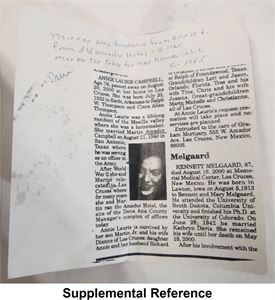 ANNIE LAURIE CAMPBELL,
age 78, passed away on August
20, 2000 at her home in Las
Cruces. She was born July 23,
1922 in Earle, Arkansas to Ralph
W. Thompson and Clara Allen
Thompson.
Annie Laurie was a lifelong
resident of the Mesilla valley
where she was a homemaker.
She married Martin Amador
Campbell on August 27, 1943 in
San Antonio,
Texas where
he was serving
as an officer in
the Army.
After World
War II she and
Martin
located to Las
Cruces where
for many years
she and Mar-
tin ran the Amador Hotel, the
site of the Dona Ana County
Manager's complex of offices
today.
Annie Laurie is survived by
her son Martin Jr. and his wife
Dianne of Las Cruces; daughter
Annie and her husband Richard
or Ralph of Friendswood, Texas.
Grandchildren Lori and Jason,
Orlando, Florida, Tres and his
wife Tina, Chris and his wife
Joanna. Great-grandchildren
Marty, Michelle and Christianna,
all of Las Cruces.
At Annie Laurie's request cre-
mation will take place and no
services are planned.
Entrusted to the care of Gra-
ham Mortuary, 555 W Amador
Ave. Las Cruces, New Mexico,
88005.
Melgaard
KENNETT MELGAARD, 87,
died August 16, 2000 at Memo-
rial Medical Center, Las Cruces,
New Mexico. He was born in
Lawton, Iowa on August 8, 1913
to Bennett and Mary Melgaard.
He attended the University of
South Dakota, Columbia Univer-
sity and finished his Ph.D. at the
University of Colorado. On
June 28, 1942 he married
Kathryn Davis. She remained
his wife until her death on May
15, 2000.
After his involvement with the
Supplemental Reference